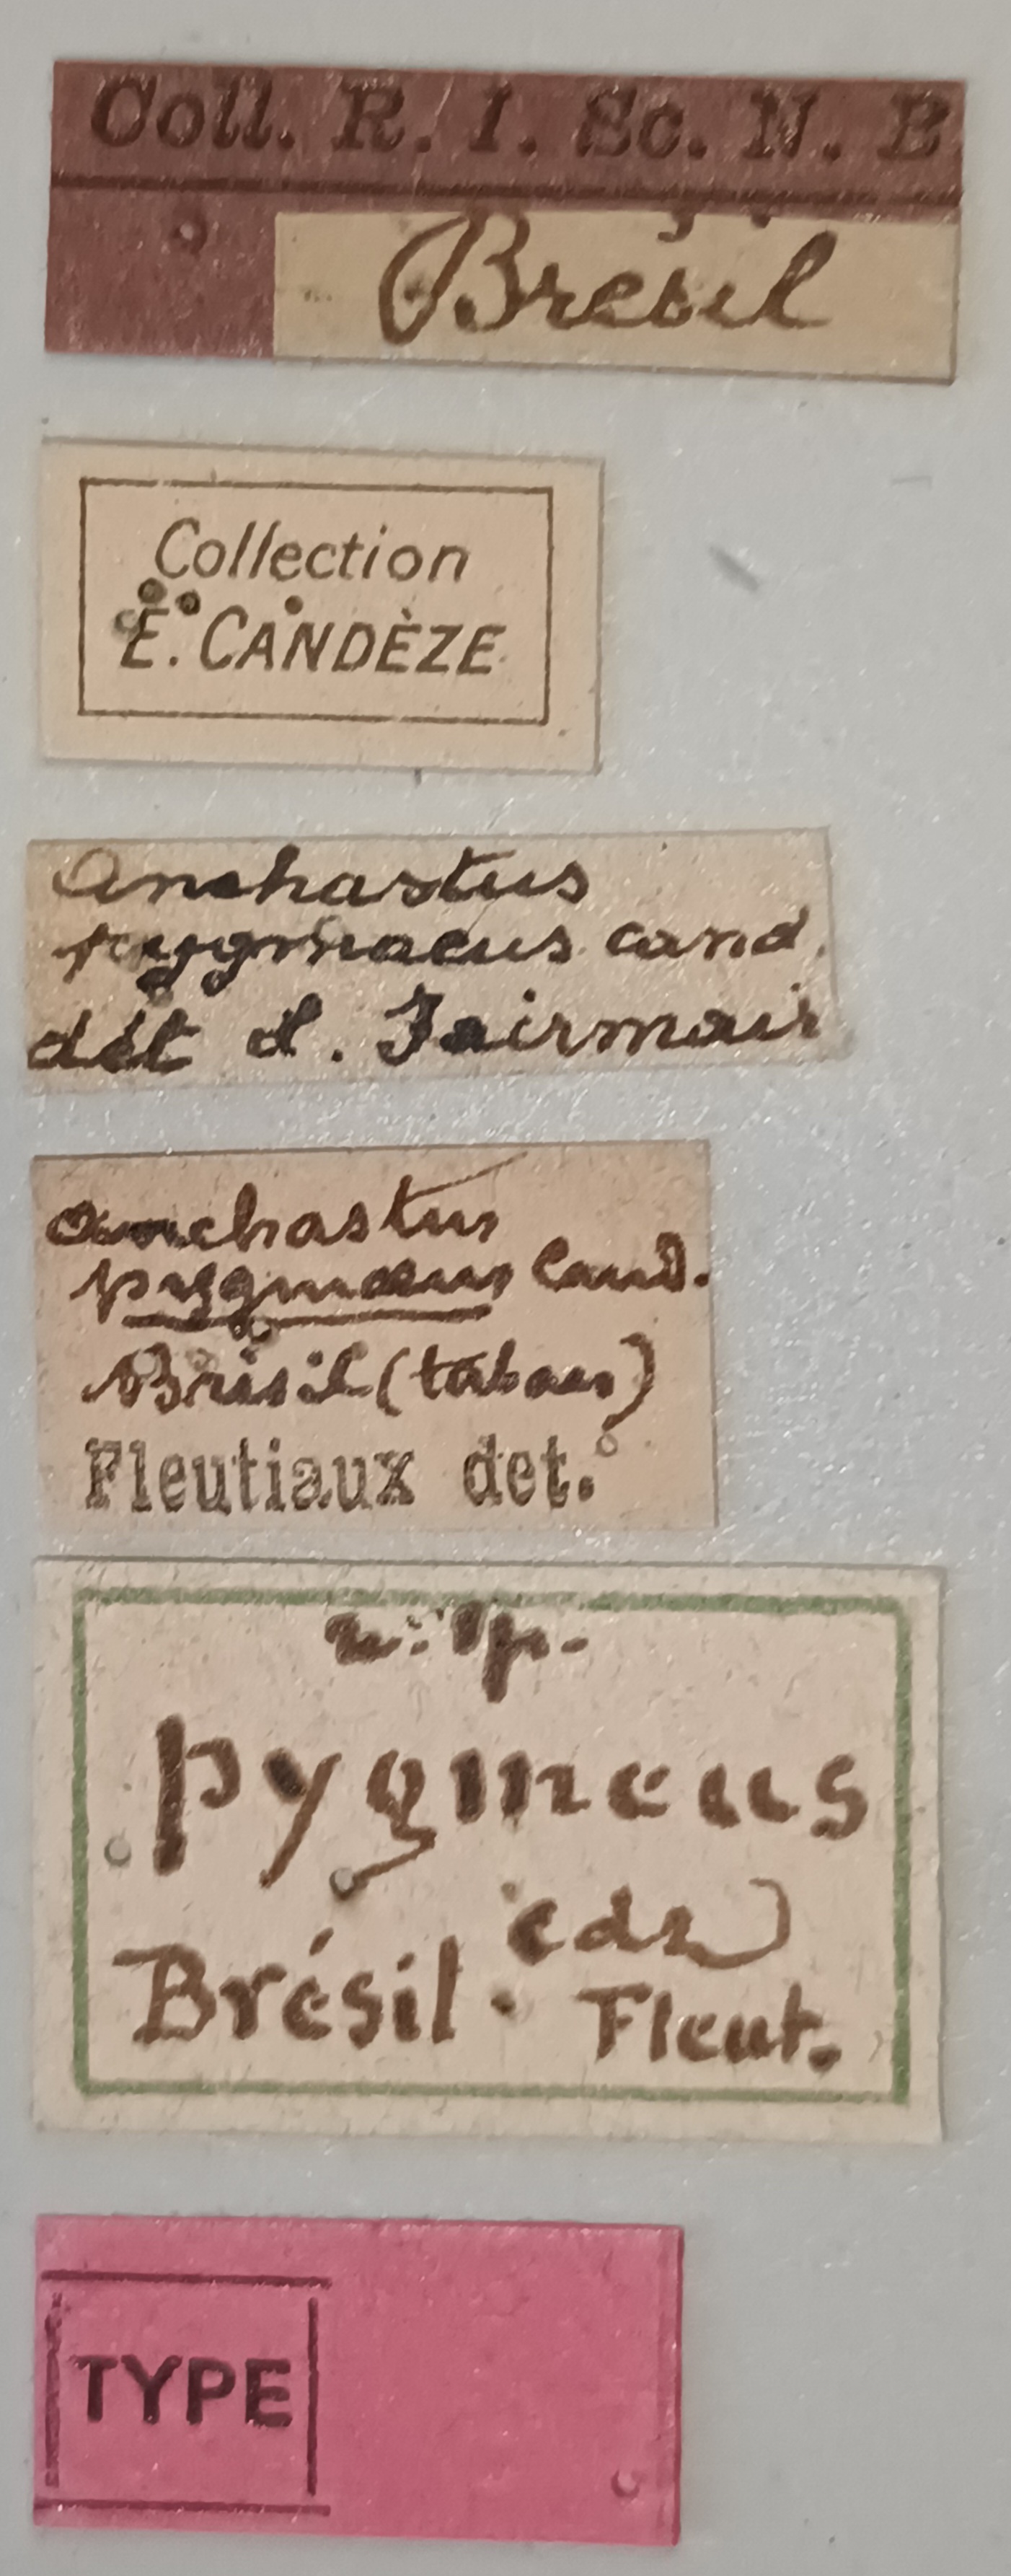 Coll. R. I. Sc. N. B
Bresil
Collection
E. CANDÈZE
Anchastus
pygmaeus cand.
dét d. Fairmair
Anchastus
pygmaeus Cand.
Brésil (tabac)
Fleutiaux det.
n. sp.
pygmeus
cdz
Brésil. Fleut.
TYPE